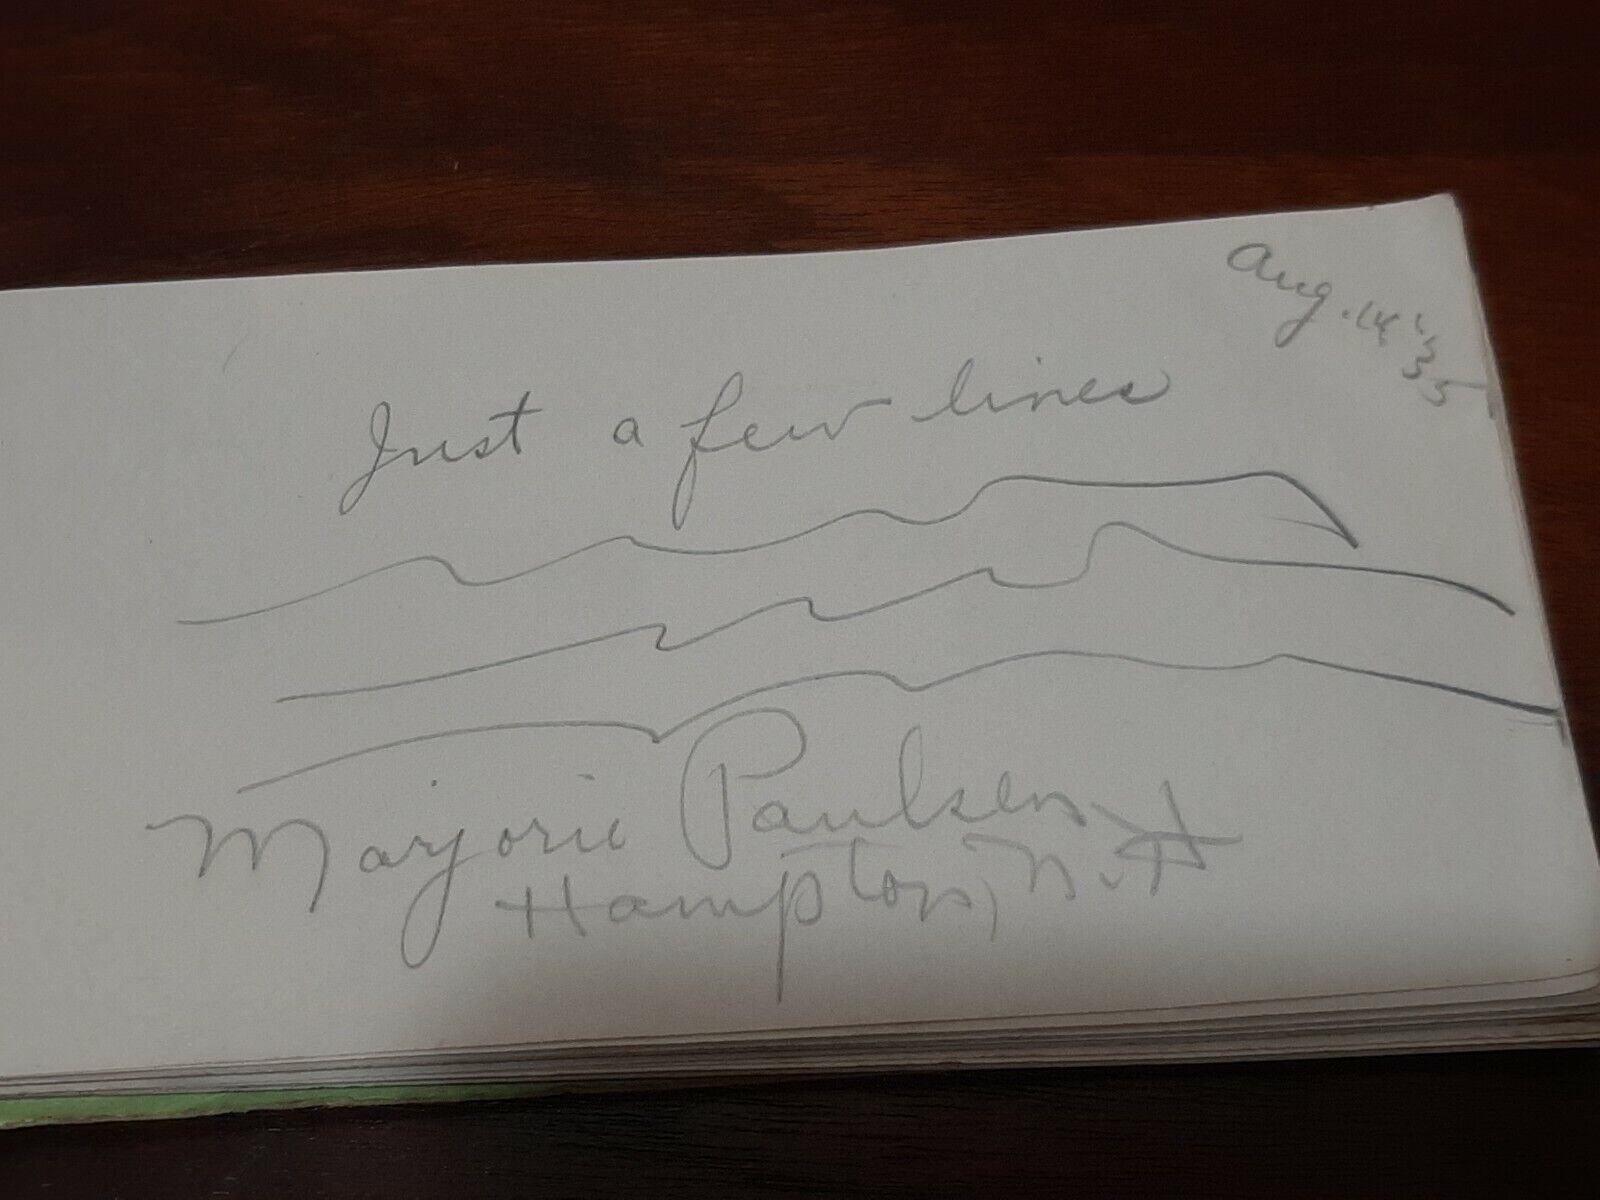 Aug. 14 '35
Just a few lines
Marjorie Paulsen
Hampton, N.H